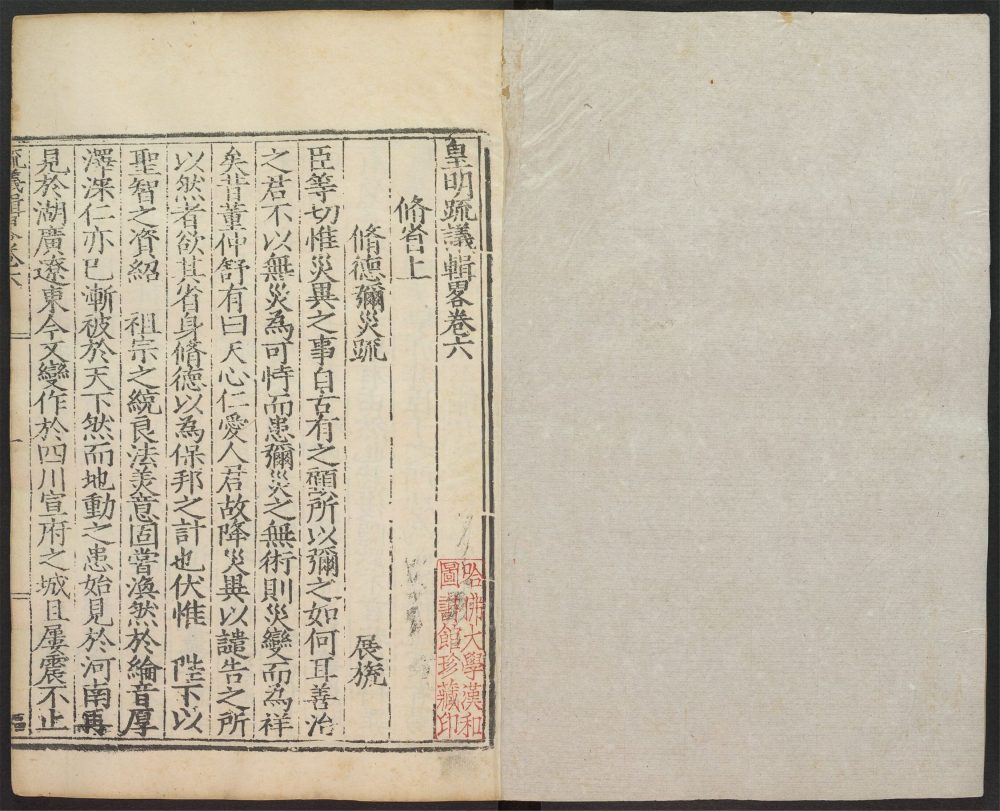 皇明疏議輯畧卷六
脩省上
脩德彌災疏
展㧒
臣等切惟災異之事自古有之顧所以彌之如何耳善治
之君不以無災為可恃而患彌災之無術則災變而為祥
矣昔董仲舒有曰天心仁愛人君故降災異以譴告之所
以然者欲其省身脩德以為保邦之計也伏惟 陛下以
聖智之資紹 祖宗之統良法美意固嘗渙然於綸音厚
澤深仁亦已漸被於天下然而地動之患始見於河南再
見於湖廣遼東今又變作於四川宣府之城且屢震不止
疏議輯畧卷六
一
哈佛大學漢和
圖書館珍藏印